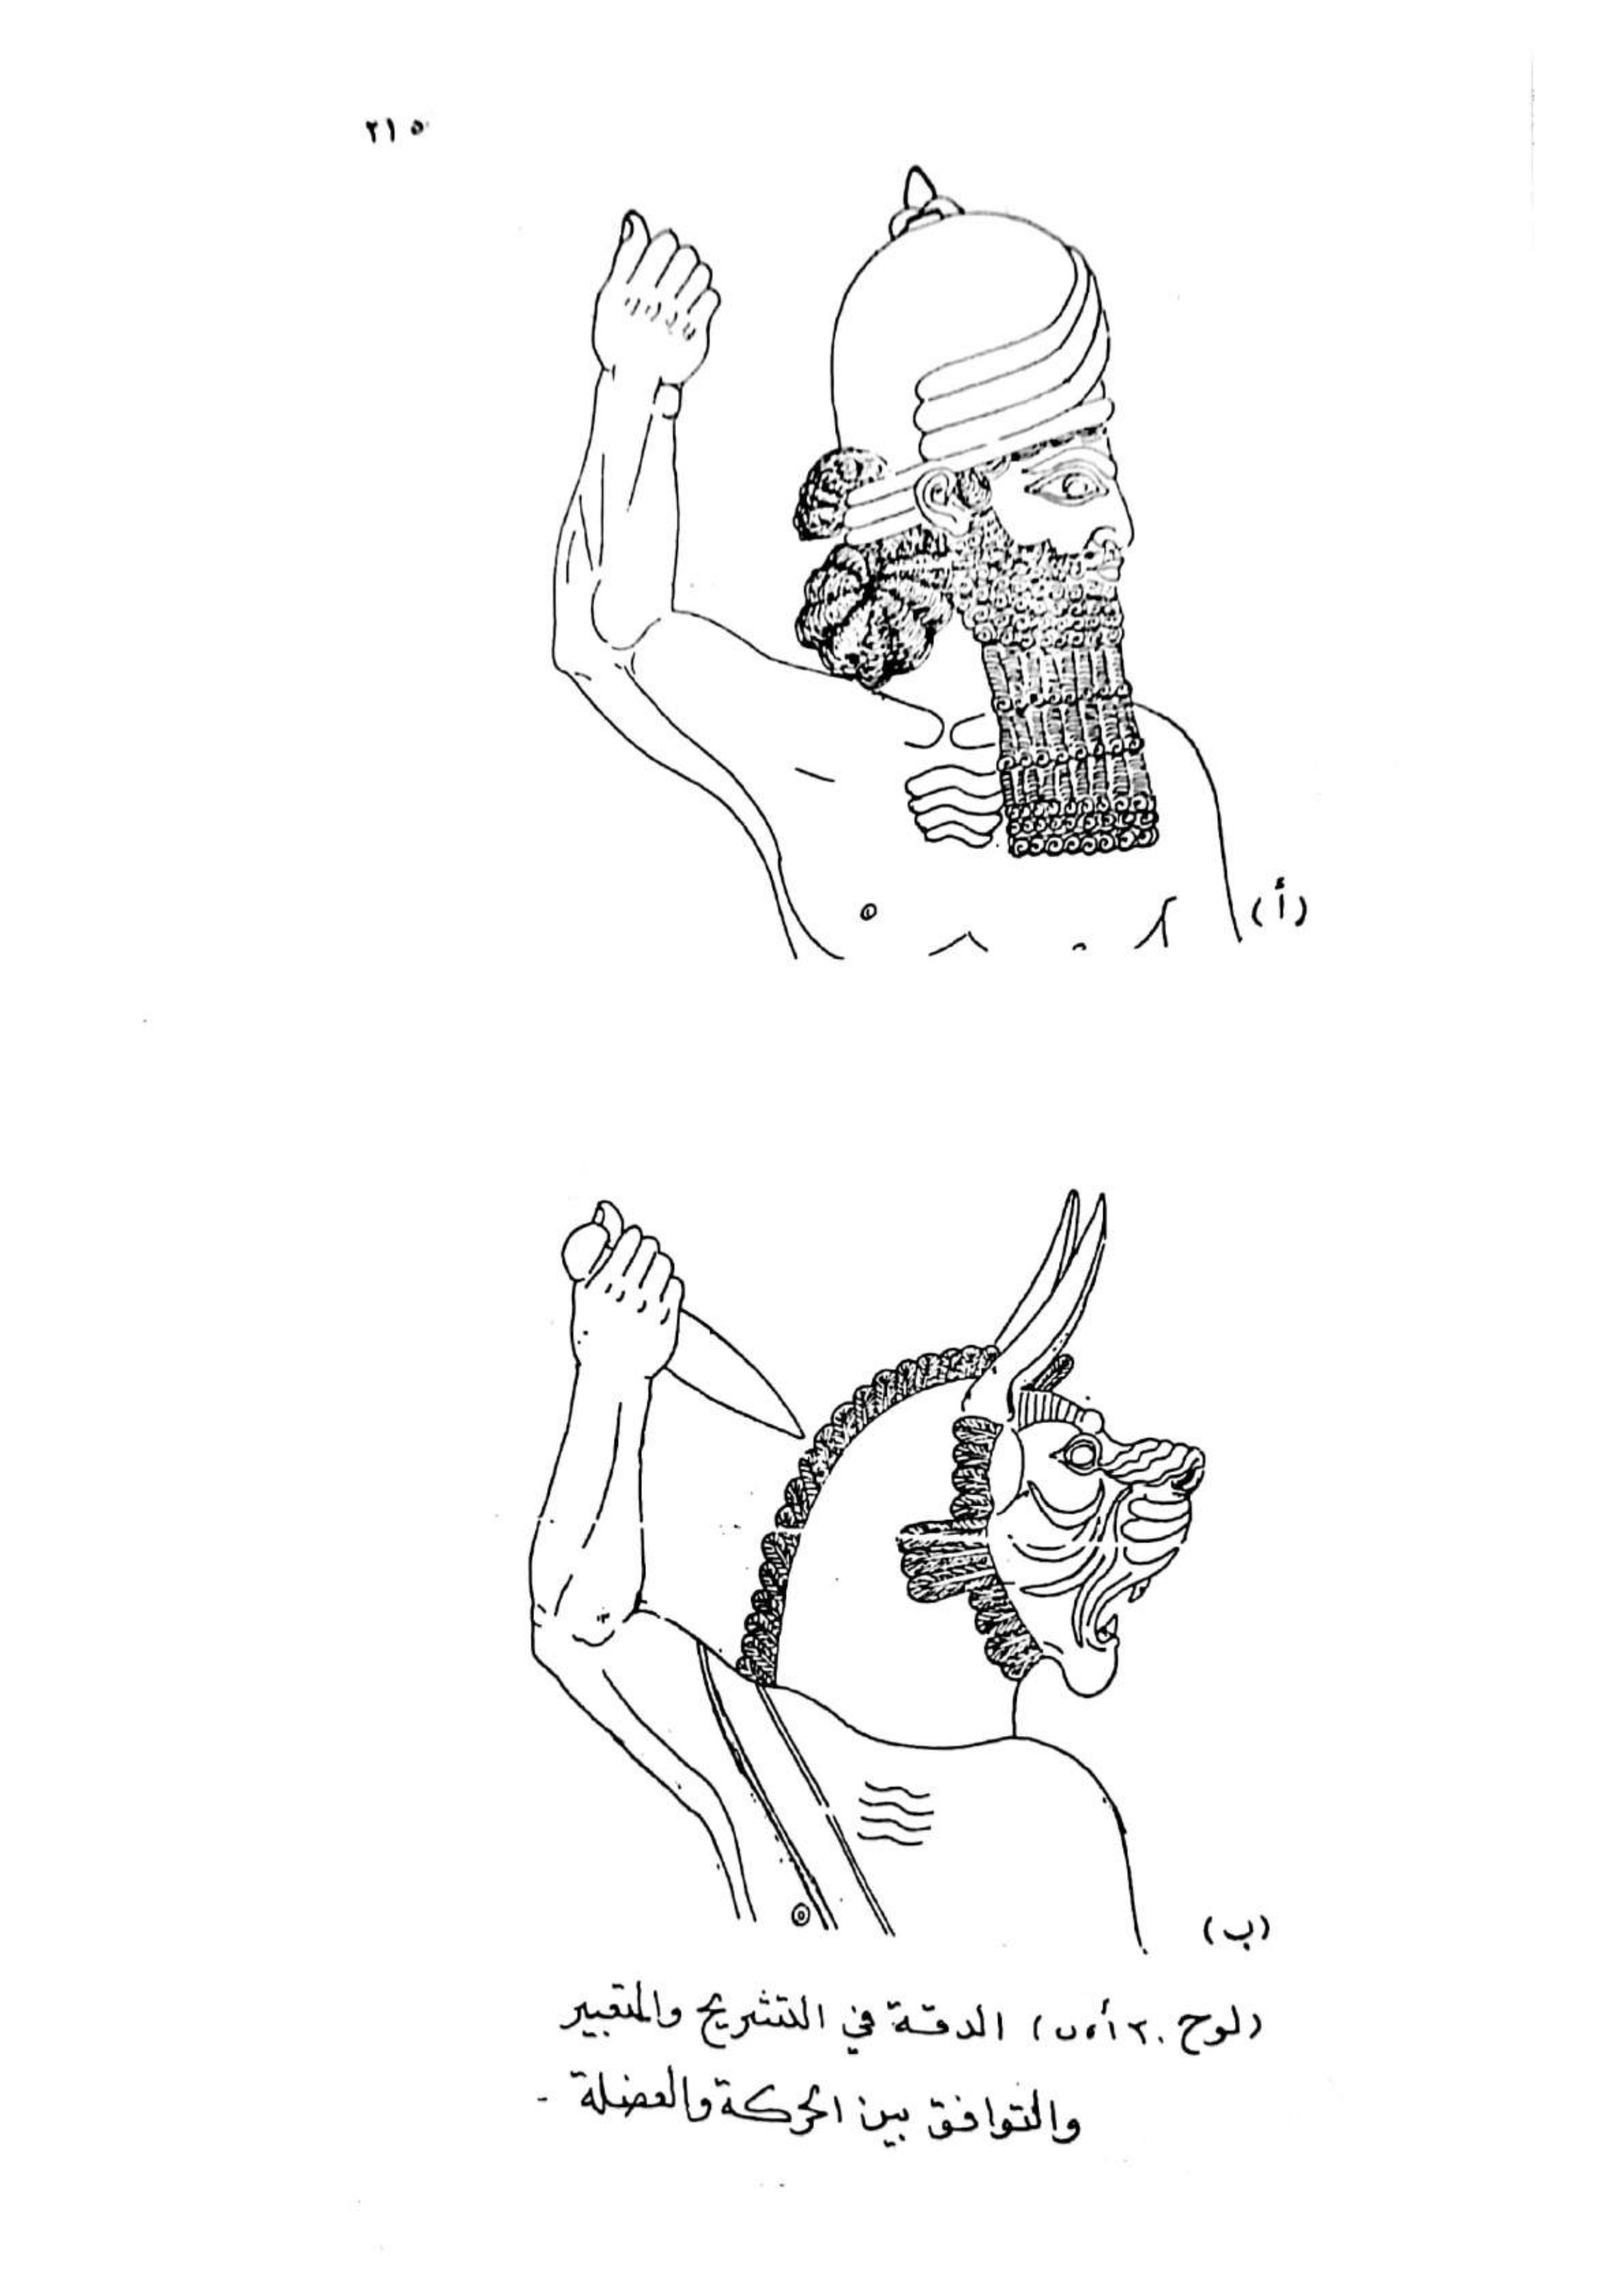 ٢١٥
(أ)
(ب)
(لوح ٣٠ أ، ب) الدقة في التشريح والتعبير
والتوافق بين الحركة والعضلة -